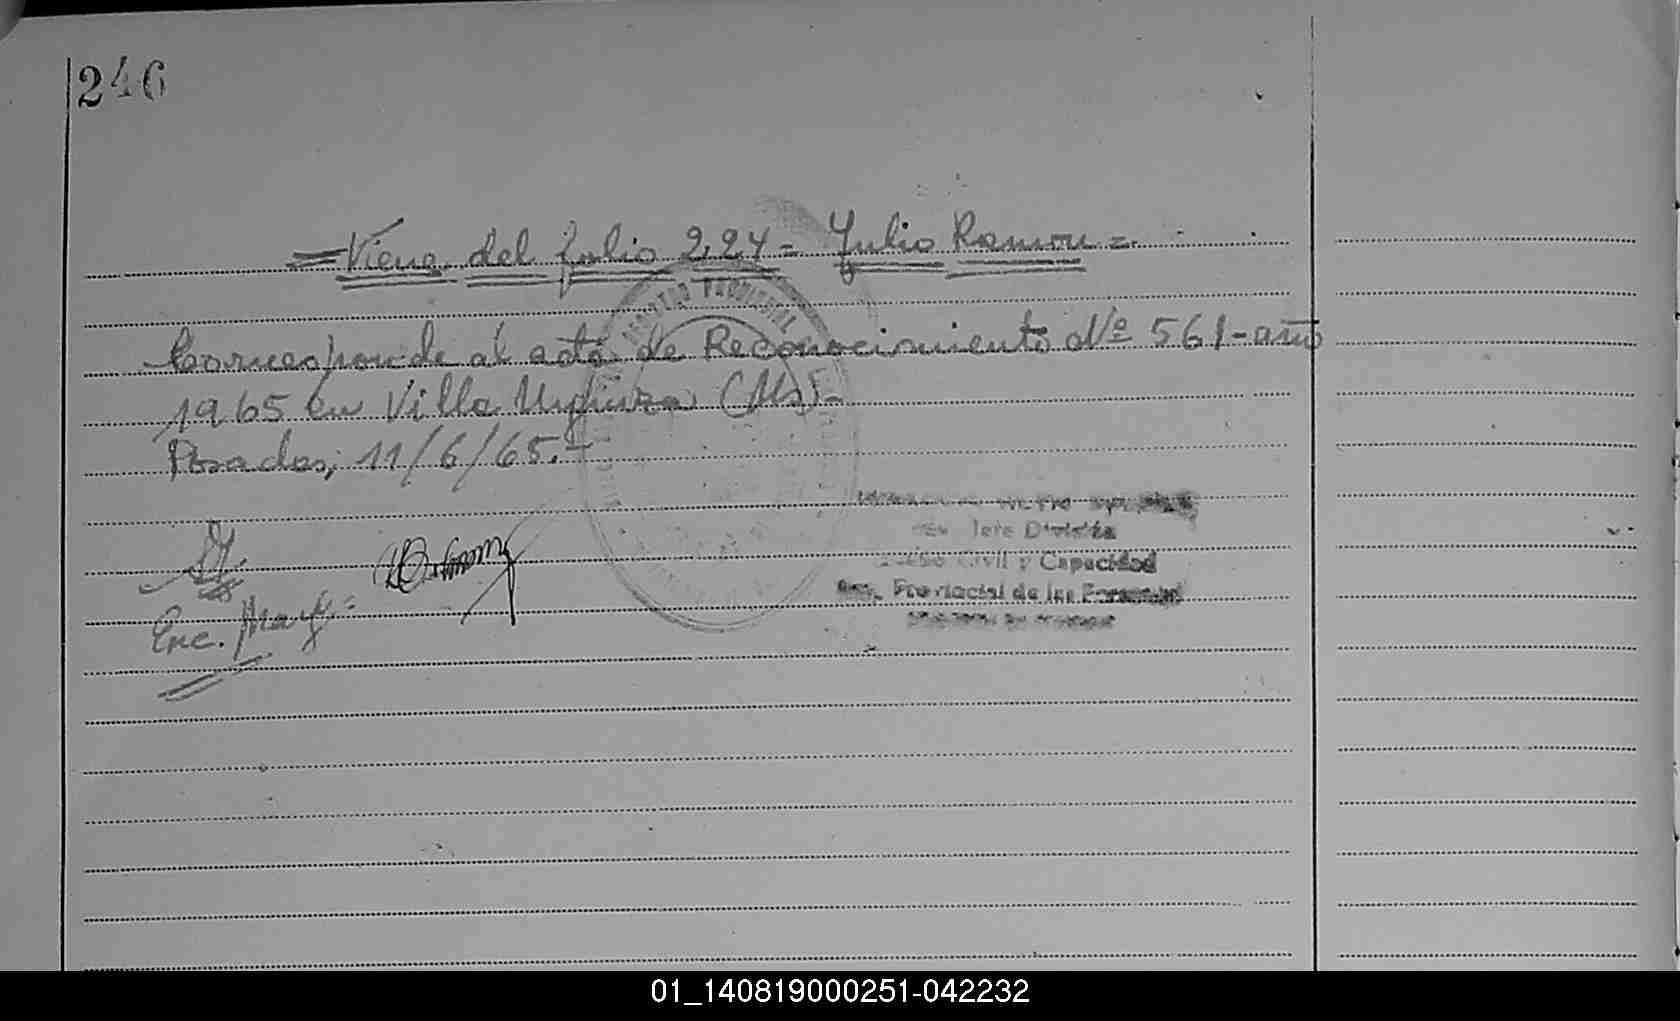 246
=Viene del folio 224= Julio Ramon=
Corresponde al acta de Reconocimiento Nº 561-año
1965 en Villa Urquiza (Ms)-
Posadas, 11/6/65.-
REGISTRO PROVINCIAL
Jefe División
Civil y Capacidad
Reg. Provincial de las Personas
Enc.
01_140819000251-042232